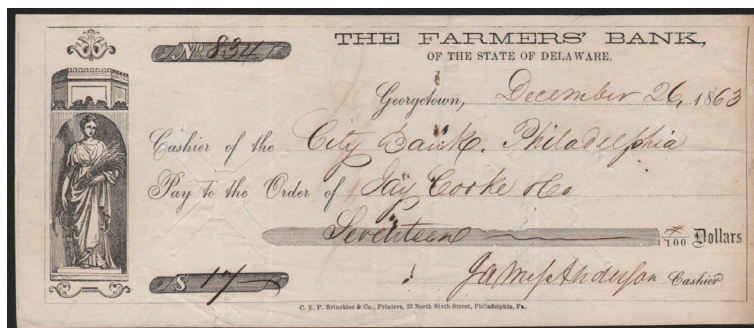 No 834
THE FARMERS' BANK,
OF THE STATE OF DELAWARE.
Georgetown, December 26, 1863
Cashier of the City Bank. Philadelphia
Pay to the Order of Jay Cooke & Co
Seventeen /100 Dollars
$ 17
Cashier
C. E. P. Brinckloe & Co., Printers, 23 North Sixth Street, Philadelphia, Pa.